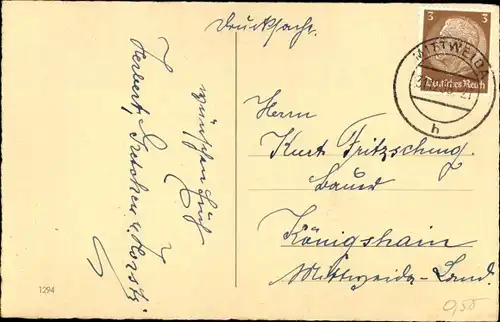 Drucksache.
3 3
Deutsches Reich
MITTWEIDA
h
wünschen Euch
Herbert, Gretchen u. Horst.
Herrn
Kurt Fritzsching.
Bauer
Königshain
Mittweida-Land.
1294
0,50